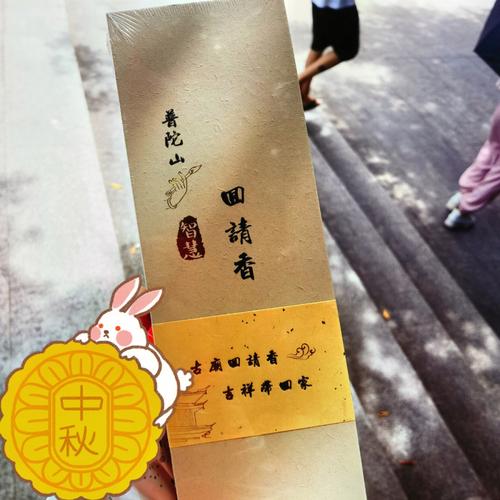 普陀山
智慧
回請香
古廟回請香
吉祥帶回家
中秋